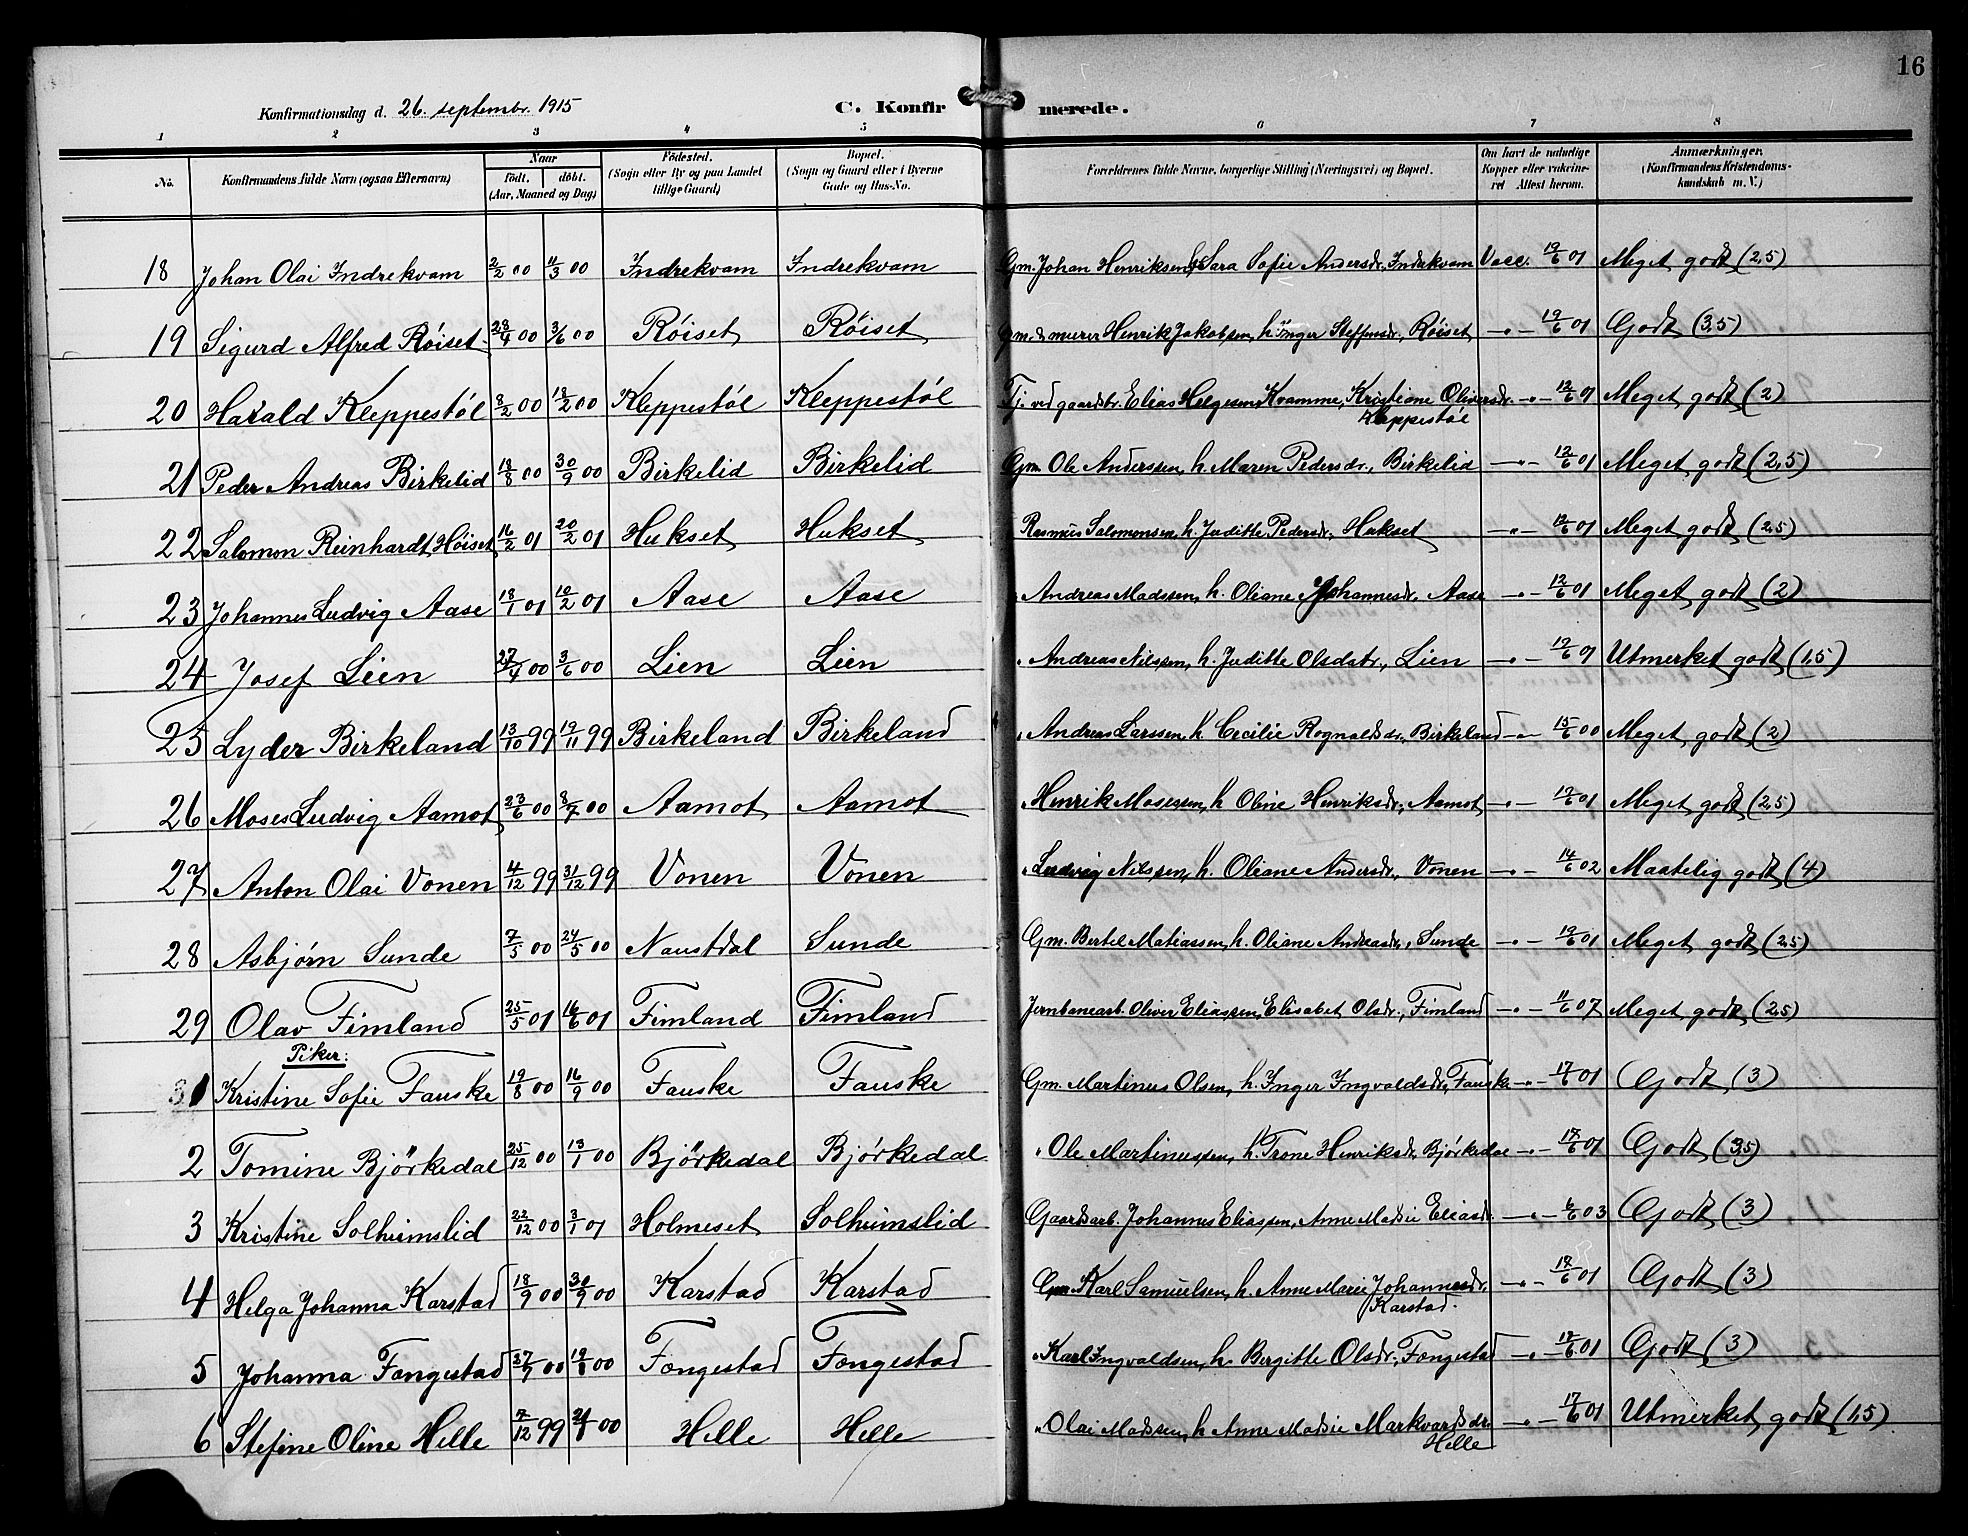 16
Konfirmationsdag d. 26. septembr. 1915 C. Konfirmerede.
1 2 3 4 5 6 7 8
No. Konfirmandens fulde Navn (ogsaa Efternavn) Naar födt. döbt. (Aar, Maaned og Dag) Födested. (Sogn eller By og paa Landet tillige Gaard) Bopæl. (Sogn og Gaard eller i Byerne Gade og Hus-No. Forældrenes fulde Navne, borgerlige Stilling (Næringsvei) og Bopæl. Om havt de naturlige Kopper eller vakcineret Attest herom. Anmærkninger. (Konfirmandens Kristendomskundskab m. V.)
18 Johan Olai Indrekvam 2/2 00 11/3 00 Indrekvam Indrekvam Gm. Johan Henriksen, Sara Sofie Andersdr. Indrekvam Vacc. 12/6 01 Meget godt (2,5)
19 Sigurd Alfred Röiset 28/4 00 3/6 00 Röiset Röiset Gm. & murer Henrik Jakobsen, h. Inger Steffensdr., Röiset -"- 12/6 01 Godt (3,5)
20 Harald Kleppestöl 8/2 00 18/2 00 Kleppestöl Kleppestöl Tj. ved gaardsbr. Elias Helgesen Kvamme, Kristiane Oliversdr. -"- 12/6 01 Meget godt (2)
Kleppestöl
21 Peder Andreas Birkelid 18/8 00 30/9 00 Birkelid Birkelid Gm. Ole Anderssen, h. Maren Pedersdr., Birkelid -"- 12/6 01 Meget godt (2,5)
22 Salomon Reinhardt Höiset 16/2 01 20/2 01 Hukset Hukset Rasmus Salomonsen, h. Juditte Pedersdr., Hukset -"- 12/6 01 Meget godt (2,5)
23 Johannes Ludvig Aase 18/1 01 10/2 01 Aase Aase " Andreas Madssen, h. Oliane Johannesdr., Aase -"- 12/6 01 Meget godt (2)
24 Josef Lien 27/4 00 3/6 00 Lien Lien " Andreas Nilssen, h. Juditte Olsdatr., Lien -"- 12/6 01 Utmerket godt (1,5)
25 Lyder Birkeland 13/10 99 19/11 99 Birkeland Birkeland " Andreas Larssen, h. Cecilie Rognaldsdr., Birkeland -"- 15/6 00 Meget godt (2)
26 Moses Ludvig Aamot 23/6 00 8/7 00 Aamot Aamot " Henrik Mosessen, h. Oline Henriksdr., Aamot -"- 12/6 01 Meget godt (2,5)
27 Anton Olai Vonen 4/12 99 31/12 99 Vonen Vonen " Ludvig Nilssen, h. Oliane Andersdr., Vonen -"- 14/6 02 Maatelig godt (4)
28 Asbjørn Sunde 7/5 00 24/5 00 Naustdal Sunde Gm. Bertel Matiassen, h. Oliane Andreasdr., Sunde -"- 12/6 01 Meget godt (2,5)
29 Olav Fimland 25/5 01 16/6 01 Fimland Fimland Jernbanearb. Oliver Eliassen, Elisabet Olsdr., Fimland -"- 11/6 07 Meget godt (2,5)
Piker:
1 Kristine Sofie Fauske 19/8 00 16/9 00 Fauske Fauske Gm. Martinus Olsen, h. Inger Ingvaldsdr., Fauske -"- 12/6 01 Godt (3)
2 Tomine Björkedal 25/12 00 13/1 00 Björkedal Björkedal " Ole Martinussen, h. Trone Henriksdr., Björkedal -"- 12/6 01 Godt (3,5)
3 Kristine Solheimslid 22/12 00 3/1 01 Holmeset Solheimslid Gaardsarb. Johannes Eliassen, Anne Madsie Eliasdr. -"- 6/6 03 Godt (3)
4 Helga Johanna Karstad 18/9 00 30/9 00 Karstad Karstad Gm. Karl Samuelsen, h. Anne Marie Johannesdr. -"- 12/6 01 Godt (3)
Karstad.
5 Johanna Fongestad 27/7 00 19/8 00 Fongestad Fongestad " Karl Ingvaldsen, h. Bergitte Olsdr., Fongestad -"- 12/6 01 Godt (3)
6 Stefine Oline Helle 7/12 99 21/1 00 Helle Helle " Olai Madssen, h. Anne Madsie Markvardsdr. -"- 12/6 01 Utmerket godt (1,5)
Helle